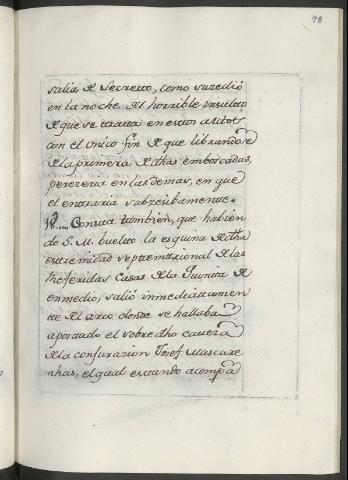 78
salia de Secretto, como suzedió
en la noche del horrible insulto
de que se tratta en estos autos
con el unico fin de que librandose
de la primera de dhas emboscadas,
pereciera en las demas, en que
el entraria subzesibamente.
18.... Consta tambien, que habien
do S. M. buelto la esquina de dha
estremidad septemtrional de las
Referidas Casas de la Quinta de
enmedio, salió inmediattamen
te del arco donde se hallaba
apostado el sobredho cavezа
de la conjurazion Josef Mascare
nhas, el qual estando acompa